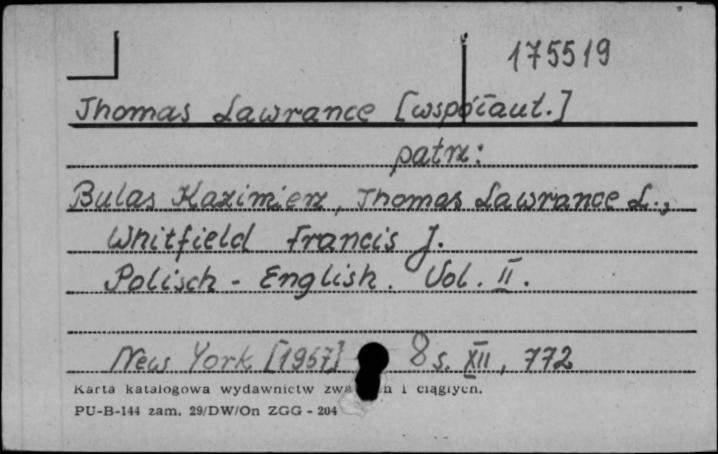 175519
Thomas Lawrance [współaut.]
patrz:
Bulas Kazimierz, Thomas Lawrance L.,
Whitfield Francis J.
Polisch - English. Vol. II.
New York [1967] 8 s. XII, 772
Karta katalogowa wydawnictw i ciągłych.
PU-B-144 zam. 29/DW/On ZGG - 204